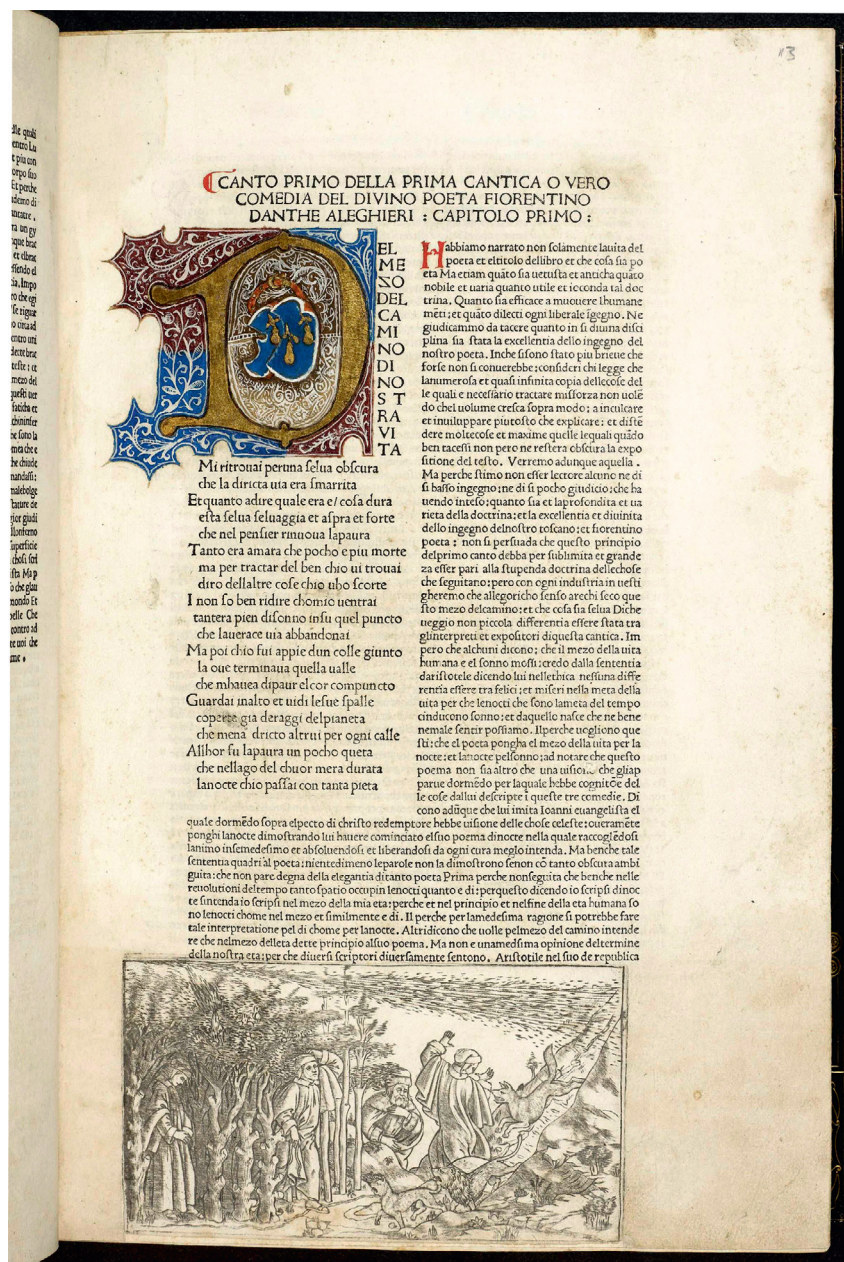 113
CANTO PRIMO DELLA PRIMA CANTICA O VERO
COMEDIA DEL DIVINO POETA FIORENTINO
DANTHE ALEGHIERI : CAPITOLO PRIMO :
D
EL
ME
ZO
DEL
CA
MI
NO
DI
NO
S T
RA
VI
TA
Mi ritrouai peruna selua obscura
che la diricta uia era smarrita
Et quanto adire quale era e/ cosa dura
esta selua seluaggia et aspra et forte
che nel pensier rinuoua lapaura
Tanto era amara che pocho e piu morte
ma per tractar del ben chio ui trouai
diro dellaltre cose chio uho scorte
I non so ben ridire chomio uentrai
tantera pien disonno insu quel puncto
che lauerace uia abbandonai
Ma poi chio fui appie dun colle giunto
la oue terminaua quella ualle
che mhauea dipaur elcor compuncto
Guardai inalto et uidi lesue spalle
coperte gia deraggi delpianeta
che mena dricto altrui per ogni calle
Allhor fu lapaura un pocho queta
che nellago del chuor mera durata
lanocte chio passai con tanta pieta
Habbiamo narrato non solamente lauita del
poeta et eltitolo dellibro et che cosa sia po
eta Ma etiam quāto sia uetusta et anticha quāto
nobile et uaria quanto utile et ioconda tal doc
trina. Quanto sia efficace a muouere lhumane
mēti; et quāto dilecti ogni liberale īgegno. Ne
giudicammo da tacere quanto in si diuina disci
plina sia stata la excellentia dello ingegno del
nostro poeta. Inche sisono stato piu brieue che
forse non si conuerebbe: consideri chi legge che
lanumerosa et quasi infinita copia dellecose del
le quali e necessario tractare misforza non uolē
do chel uolume cresca sopra modo; a inculcare
et inuiluppare piutosto che explicare; et distē
dere moltecose et maxime quelle lequali quādo
ben tacessi non pero ne restera obscura la expo
sitione del testo. Verremo adunque aquella.
Ma perche stimo non esser lectore alcuno ne di
si basso ingegno; ne di si pocho giudicio; che ha
uendo inteso; quanto sia et laprofondita et ua
rieta della doctrina; et la excellentia et diuinita
dello ingegno delnostro toscano; et fiorentino
poeta; non si persuada che questo principio
delprimo canto debba per sublimita et grande
za esser pari alla stupenda doctrina dellechose
che seguitano; pero con ogni industria in uesti
gheremo che allegoricho senso arechi seco que
sto mezo delcamino; et che cosa sia selua Diche
ueggio non piccola differentia essere stata tra
glinterpreti et expositori diquesta cantica. Im
pero che alchuni dicono; che il mezo della uita
humana e el sonno mossi; credo dalla sententia
daristotele dicendo lui nellethica nessuna diffe
rentia essere tra felici; et miseri nella meta della
uita per che lenocti che sono lameta del tempo
cinducono sonno; et daquello nasce che ne bene
nemale sentir possiamo. Ilperche uogliono que
sti; che el poeta pongha el mezo della uita per la
nocte; et lanocte pelsonno; ad notare che questo
poema non sia altro che una uisione che gliap
parue dormēdo per laquale hebbe cognitiōe del
le cose dallui descripte ī queste tre comedie. Di
cono adūque che lui imita Ioanni euangelista el
quale dormēdo sopra elpecto di christo redemptore hebbe uisione delle chose celeste; oueramēte
ponghi lanocte dimostrando lui hauere cominciato elsuo poema dinocte nella quale raccogliēdosi
lanimo insemedesimo et absoluendosi et liberandosi da ogni cura meglo intenda. Ma benche tale
sententia quadri al poeta; nientedimeno leparole non la dimostrono senon cō tanto obscura ambi
guita; che non pare degna della elegantia ditanto poeta Prima perche nonseguita che benche nelle
reuolutioni deltempo tanto spatio occupin lenocti quanto e di; perquesto dicendo io scripsi dinoc
te sintenda io scripsi nel mezo della mia eta; perche et nel principio et nelfine della eta humana so
no lenocti chome nel mezo et similmente e di. Il perche per lamedesima ragione si potrebbe fare
tale interpretatione pel di chome per lanocte. Altri dicono che uolle pelmezo del camino intende
re che nelmezo delleta dette principio alsuo poema. Ma non e unamedesima opinione deltermine
della nostra eta; per che diuersi scriptori diuersamente sentono. Aristotile nel suo de republica